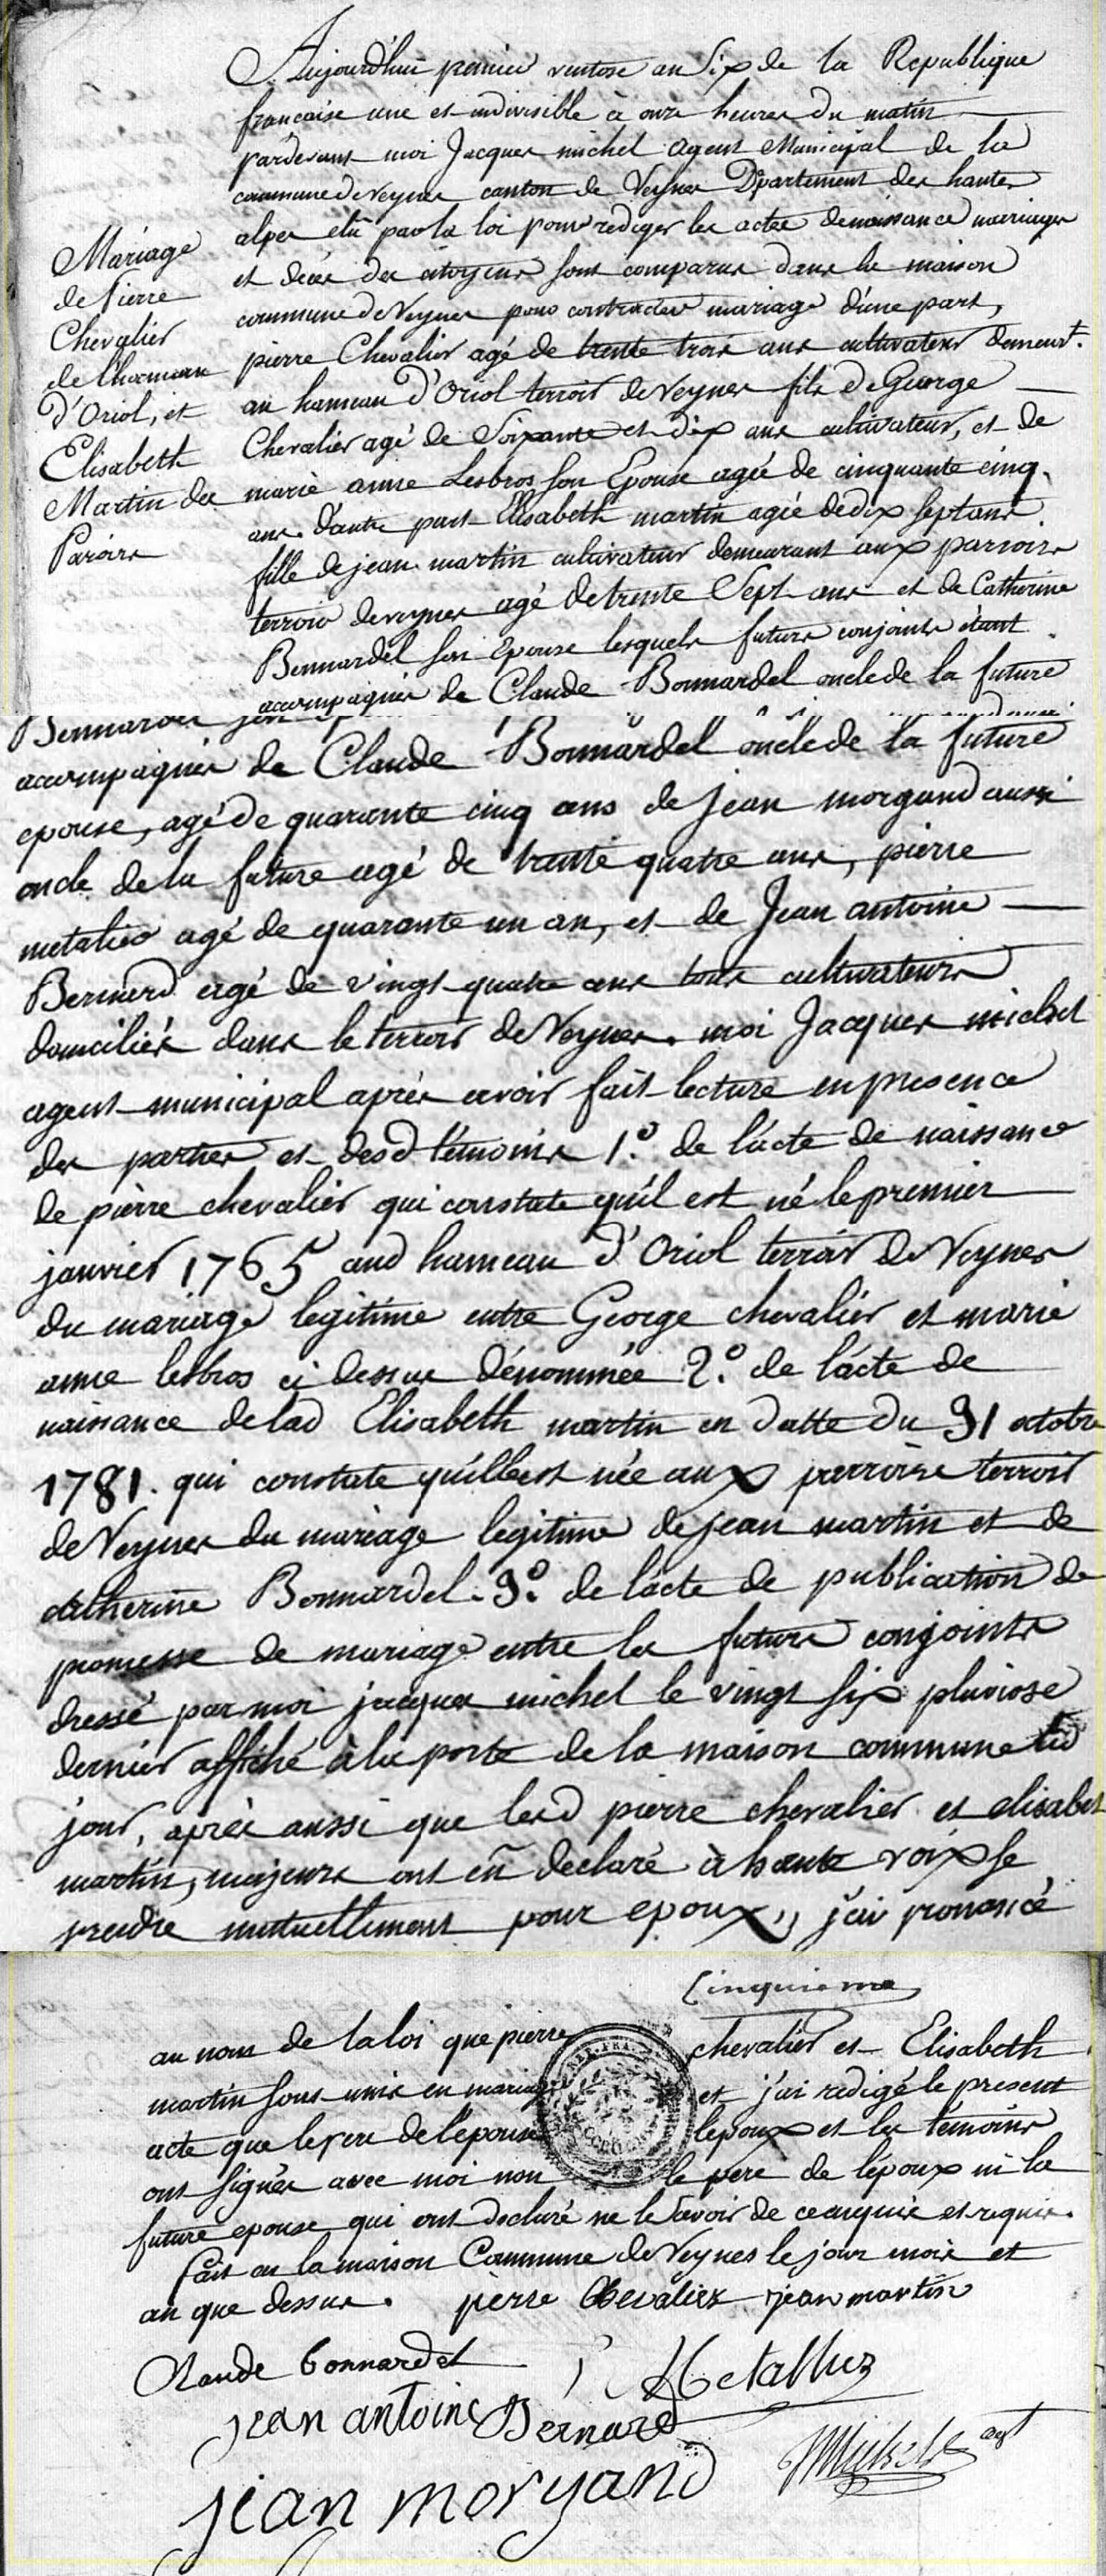 Aujourd'hui premier ventose an Six de la Republique
francaise une et indivisible à onze heures du matin
pardevant moi Jacques michel Agent Municipal de la
commune de veynes canton de Veynes Département des hautes
alpes élu par la loi pour rediger les actes de naissance mariages
et décès des citoyens sont comparus dans la maison
commune de Veynes pour contracter mariage d'une part,
pierre Chevalier agé de trente trois ans cultivateur demeurt.
au hameau d'Oriol terroir de Veynes fils de George
Chevalier agé de Soixante et dix ans cultivateur, et de
marie anne Lesbros son Epouse agée de cinquante cinq
ans. d'autre part Elisabeth martin agée de dix sept ans
fille de jean martin cultivateur demeurant aux paroirs
terroir de veynes agé de trente Sept ans et de Catherine
Bonnardel son Epouse lesquels futurs conjoints étant
accompagnés de Claude Bonnardel oncle de la future
Mariage
de Pierre
Chevalier
de lhameau
d'Oriol, et
Elisabeth
Martin des
Paroirs
accompagnés de Claude Bonnardel oncle de la future
epouse, agé de quarante cinq ans de jean morgand aussi
oncle de la future agé de trente quatre ans, pierre
metalier agé de quarante un an, et de Jean antoine
Bernard agé de vingt quatre ans tous cultivateurs
domiciliés dans le terroir de Veynes. moi Jacques michel
agent municipal après avoir fait lecture en presence
des parties et desd témoins 1.º de l'acte de naissance
de pierre chevalier qui constate qu'il est né le premier
janvier 1765 aud hameau d'Oriol terroir de Veynes
du mariage legitime entre George chevalier et marie
anne lesbros ci dessus dénommée 2.º de l'acte de
naissance de lad Elisabeth martin en datte du 31 octobre
1781. qui constate qu'elle est née aux parroirs terroir
de Veynes du mariage legitime de jean martin et de
catherine Bonnardel. 3.º de l'acte de publication de
promesse de mariage entre les futurs conjoints
dressé par moi jacques michel le vingt six pluviose
dernier affiché à la porte de la maison commune led
jour, après aussi que lesd pierre chevalier et elisabet
martin, majeurs ont eñ declaré à haute voix se
prendre mutuellement pour epoux,, j'ai prononcé
Cinquieme
au nom de la loi que pierre chevalier et Elisabeth
martin sont unis en mariage et j'ai redigé le present
acte que le pere de l'épouse lepoux et les témoins
ont signés avec moi non le pere de lépoux ni la
future epouse qui ont declaré ne le savoir de ce enquis et requis.
fait en la maison Commune de Veynes le jour mois et
an que dessus. pierre Chevalier jean martin
Claude bonnardel
P Metallier
jean antoine Bernard
JMichel agt
jean morgand